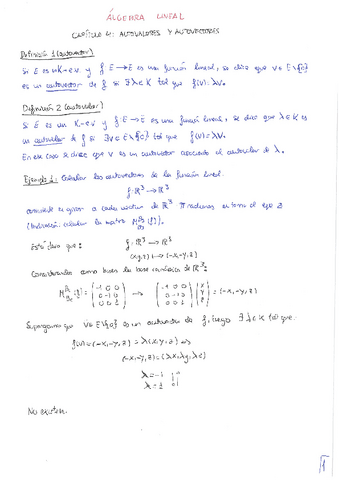 ÁLGEBRA LINEAL
CAPÍTULO 4: AUTOVALORES Y AUTOVECTORES
Definición 1 (autovector)
Si E es un K-e.v. y f: E → E es una función lineal, se dice que v ∈ E\{0}
es un autovector de f si ∃ λ ∈ K tal que f(v) = λv.
Definición 2 (autovalor)
Si E es un K-e.v. y f: E → E es una función lineal, se dice que λ ∈ K es
un autovalor de f si ∃ v ∈ E\{0} tal que f(v) = λv.
En ese caso se dice que v es un autovector asociado al autovalor de λ.
Ejemplo 1: Calcular los autovectores de la función lineal:
f: ℝ³ → ℝ³
consiste en girar a cada vector de ℝ³ π radianes en torno al eje z
(Indicación: calcular la matriz
Está claro que: f: ℝ³ → ℝ³
(x,y,z) ↦ (-x,-y,z)
Consideremos como base la base canónica de ℝ³:
(-1 0 0 / 0 -1 0 / 0 0 1) → (-1 0 0 / 0 -1 0 / 0 0 1) (x / y / z) = (-x,-y,z)
Supongamos que v ∈ E\{0} es un autovector de f, luego ∃ λ ∈ K tal que:
f(v) = (-x,-y,z) = λ(x,y,z) ⇔
(-x,-y,z) = (λx, λy, λz)
λ = -1
λ = 1
No existen.
1